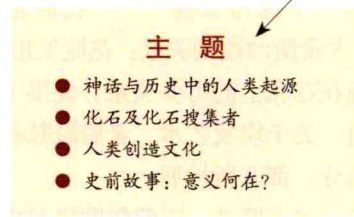 主 题
● 神话与历史中的人类起源
● 化石及化石搜集者
● 人类创造文化
● 史前故事：意义何在？